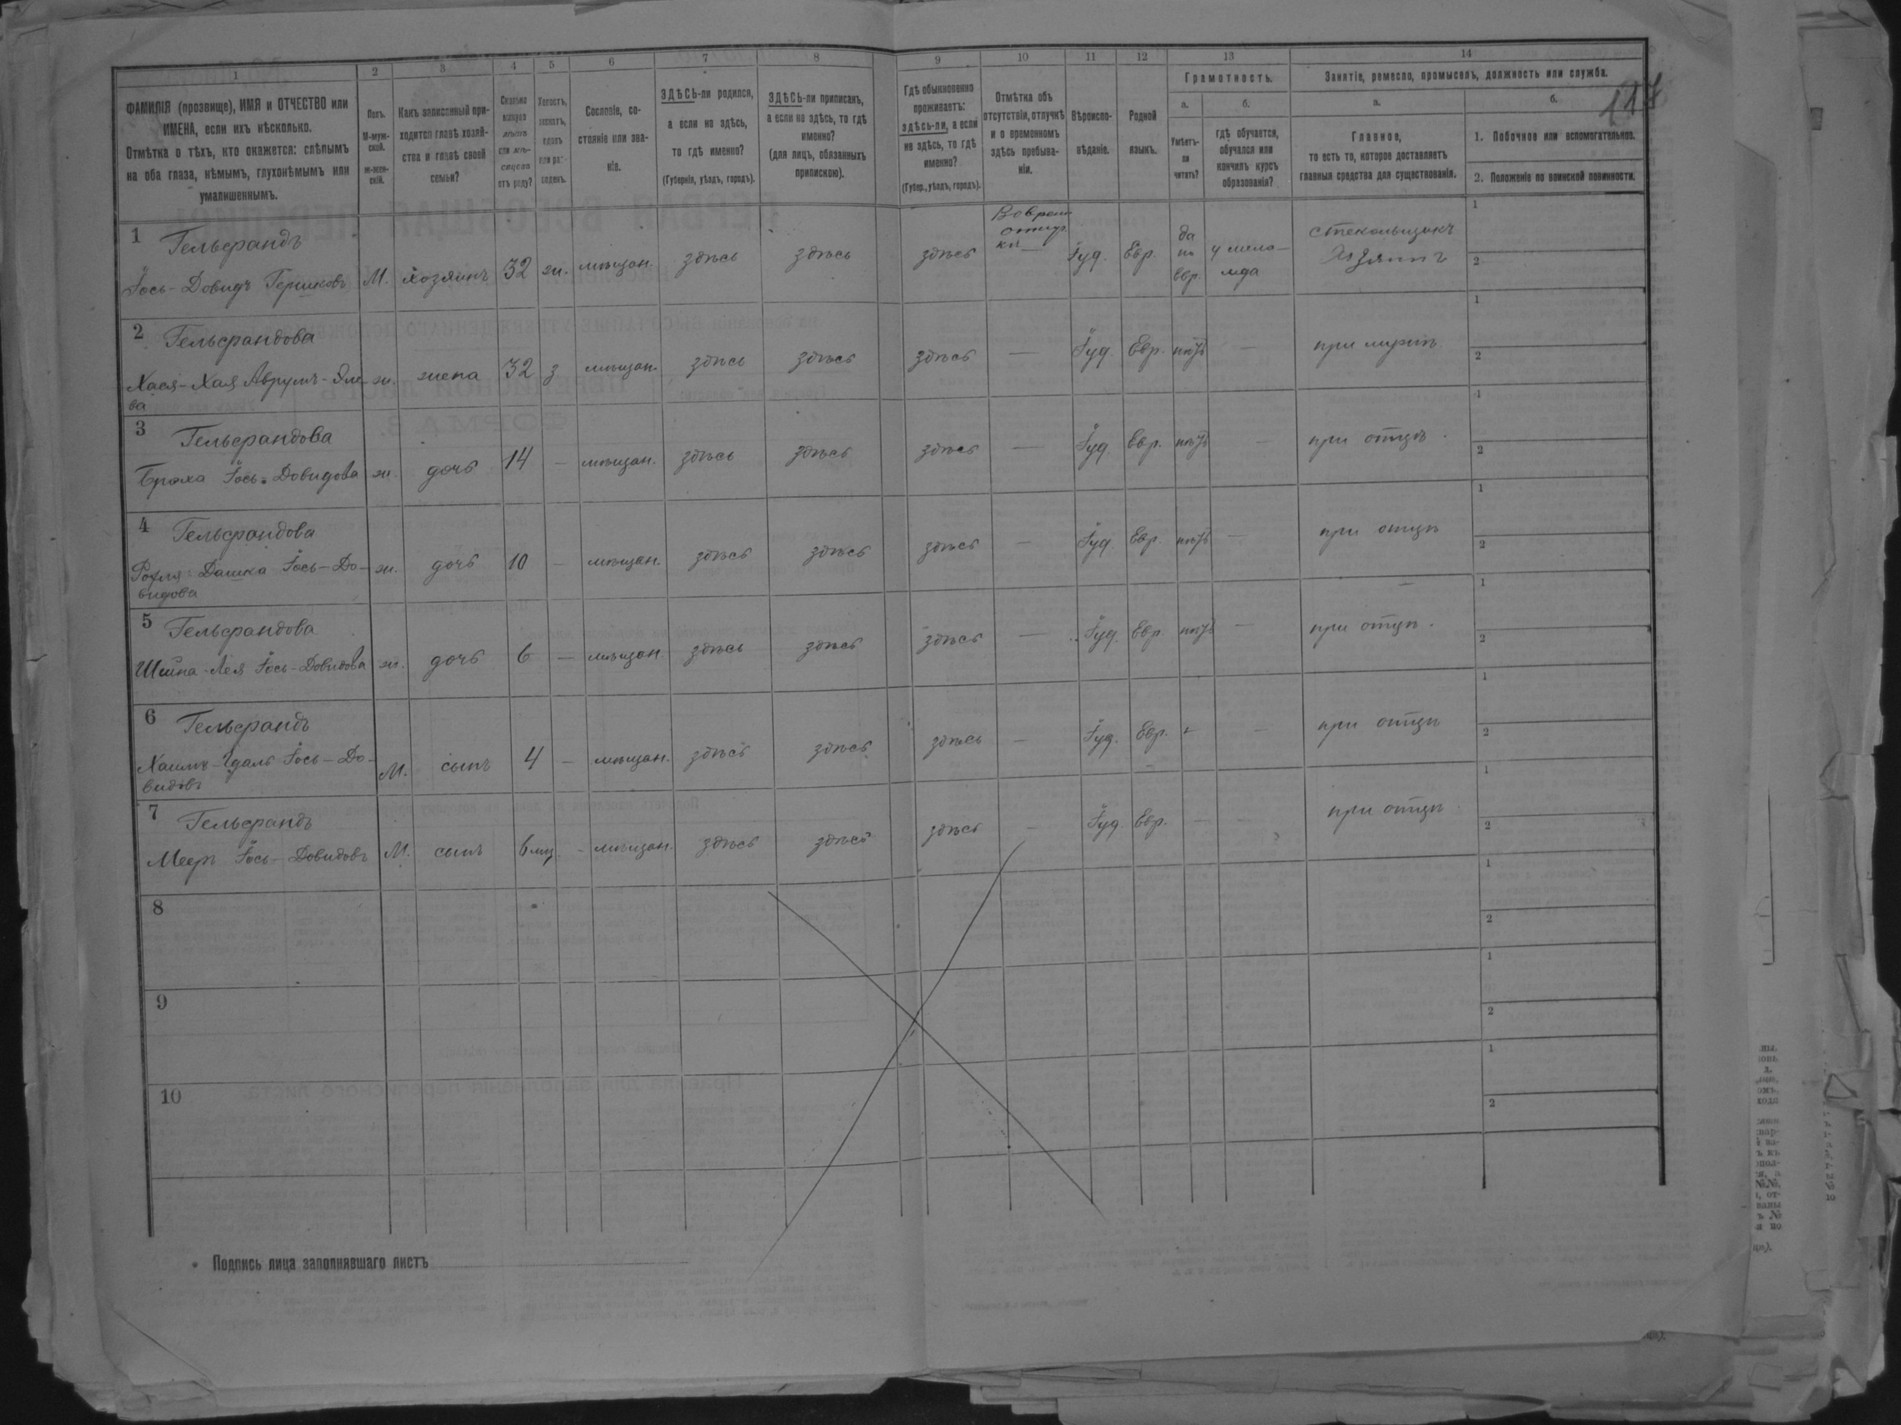 117
1 2 3 4 5 6 7 8 9 10 11 12 13 14
ФАМИЛІЯ (прозвище), ИМЯ и ОТЧЕСТВО или
ИМЕНА, если ихъ нѣсколько.
Отмѣтка о тѣхъ, кто окажется: слѣпымъ
на оба глаза, нѣмымъ, глухонѣмымъ или
умалишеннымъ.
Полъ.
М-муж-
ской.
ж-жен-
скій.
Какъ записанный при-
ходится главѣ хозяй-
ства и главѣ своей
семьи?
Сколько
минуло
лѣтъ
или мѣ-
сяцевъ
отъ роду?
Холостъ,
женатъ,
вдовъ
или раз-
веденъ.
Сословіе, со-
стояніе или зва-
ніе.
ЗДѢСЬ-ли родился,
а если не здѣсь,
то гдѣ именно?
(Губернія, уѣздъ, городъ).
ЗДѢСЬ-ли приписанъ,
а если не здѣсь, то гдѣ
именно?
(для лицъ, обязанныхъ
припискою).
Гдѣ обыкновенно
проживаетъ:
здѣсь-ли, а если
не здѣсь, то гдѣ
именно?
(Губер., уѣздъ, городъ).
Отмѣтка объ
отсутствіи, отлучкѣ
и о временномъ
здѣсь пребыва-
ніи.
Вѣроиспо-
вѣданіе.
Родной
языкъ.
Грамотность.
а.
Умѣетъ-
ли
читать?
б.
гдѣ обучается,
обучался или
кончилъ курсъ
образованія?
Занятіе, ремесло, промыселъ, должность или служба.
а.
Главное,
то есть то, которое доставляетъ
главныя средства для существованія.
б.
1. Побочное или вспомогательное.
2. Положеніе по воинской повинности.
1 Гельфрандъ
Іось-Довидъ Гершковъ М. хозяинъ 32 ж. мѣщан. здѣсь здѣсь здѣсь Іуд. Евр. да по Евр. у мела-
мда стекольщикъ
хозяинъ 1 2
2 Гельфрандова
Хася-Хая Аврумъ-Эле-
ва ж. жена 32 з. мѣщан. здѣсь здѣсь здѣсь — Іуд. Евр. нѣтъ — при мужѣ 1 2
3 Гельфрандова
Браха Іось-Довидова ж. дочь 14 — мѣщан. здѣсь здѣсь здѣсь — Іуд. Евр. нѣтъ — при отцѣ. 1 2
4 Гельфрандова
Рохля-Дашка Іось-До-
видова ж. дочь 10 — мѣщан. здѣсь здѣсь здѣсь — Іуд. Евр. нѣтъ — при отцѣ 1 2
5 Гельфрандова
Шейна-Лея Іось-Довидова ж. дочь 6 — мѣщан. здѣсь здѣсь здѣсь — Іуд. Евр. нѣтъ — при отцѣ. 1 2
6 Гельфрандъ
Хаимъ-Удаль Іось-До-
видовъ М. сынъ 4 — мѣщан. здѣсь здѣсь здѣсь — Іуд. Евр. — — при отцѣ 1 2
7 Гельфрандъ
Мееръ Іось-Довидовъ М. сынъ 6 мц. — мѣщан. здѣсь здѣсь здѣсь — Іуд. Евр. — — при отцѣ 1 2
8 1 2
9 1 2
10 1 2
Подпись лица заполнявшаго листъ